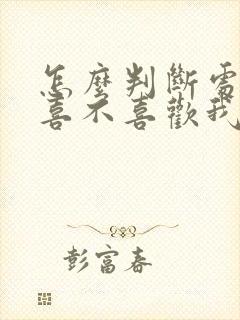 怎麼判斷處
喜不喜歡我
彭富春